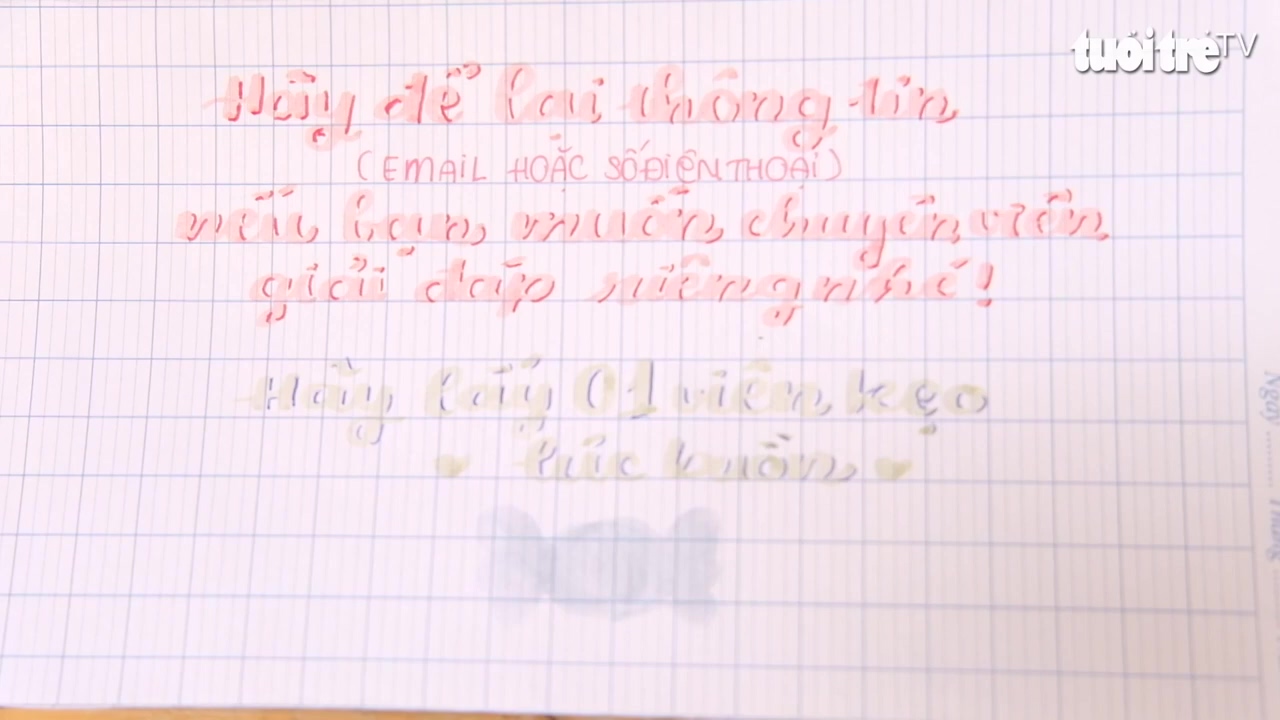 tuoitre TV
Hãy để lại thông tin
(EMAIL HOẶC SỐ ĐIỆN THOẠI)
nếu bạn muốn chuyên viên
giải đáp riêng nhé!
Hãy lấy 01 viên kẹo
lúc buồn
Ngày
Tháng